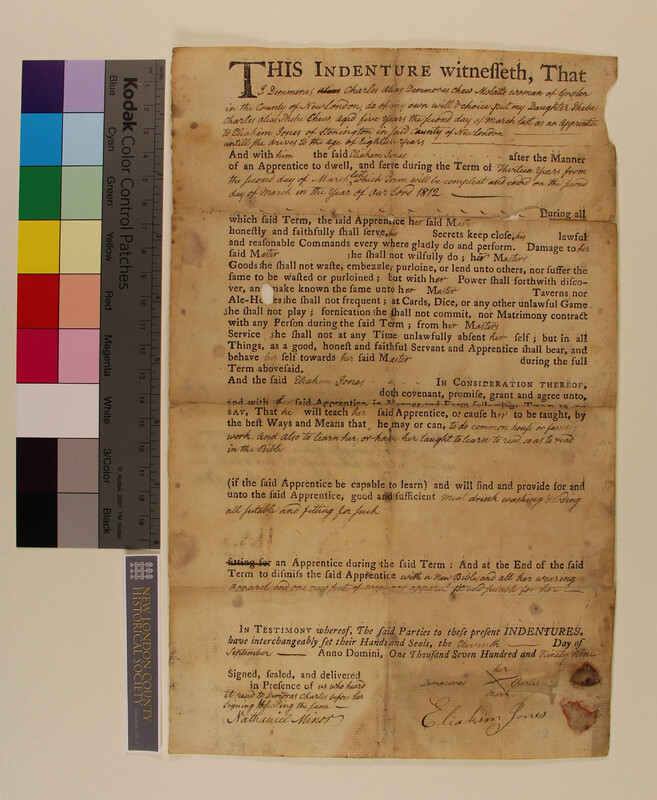 THIS INDENTURE witnesseth, That
I Demmoras Charles Alias Demmoras Chew Molatto woman of Groton
in the County of New London, do of my own will & choice put my Daughter Phebe
Charles alias Phebe Chew, aged five years the second day of March last as an Apprentice
to Eliakim Jones of Stonington in said County of New London
untill she arives to the age of Eighteen Years
And with him the said Eliakim Jones after the Manner
of an Apprentice to dwell, and serve during the Term of Thirteen Years from
the second day of March last which Term will be compleat and ended on the second
day of March in the Year of Our Lord 1812
During all
which said Term, the said Apprentice her said Master
honestly and faithfully shall serve, his Secrets keep close, his lawful
and reasonable Commands every where gladly do and perform. Damage to her
said Master she shall not wilfully do; her Masters
Goods she shall not waste, embezzle, purloine, or lend unto others, nor suffer the
same to be wasted or purloined; but with her Power shall forthwith disco-
ver, and make known the same unto her Master Taverns nor
Ale-Houses she shall not frequent; at Cards, Dice, or any other unlawful Game
she shall not play; fornication she shall not commit, nor Matrimony contract
with any Person during the said Term; from her Masters
Service she shall not at any Time unlawfully absent her self; but in all
Things, as a good, honest and faithful Servant and Apprentice shall bear, and
behave her self towards her said Master during the full
Term abovesaid.
And the said Eliakim Jones IN CONSIDERATION THEREOF,
doth covenant, promise, grant and agree unto,
and with her said Apprentice, in Manner and Form following. THAT IS TO
SAY, That he will teach her said Apprentice, or cause her to be taught, by
the best Ways and Means that he may or can, to do common house or family
work And also to learn her or have her taught to learn to read, so as to read
in the Bible
(if the said Apprentice be capable to learn) and will find and provide for and
unto the said Apprentice, good and sufficient meat drink washing & lodging
all sutable and fitting for such
fitting for an Apprentice during the said Term: And at the End of the said
Term to dismiss the said Apprentice with a New Bible and all her wearing
Apparel and one new suit of wearing apparel fit and sutable for her
IN TESTIMONY whereof, The said Parties to these present INDENTURES,
have interchangeably set their Hands and Seals, the Eleventh Day of
September Anno Domini, One Thousand Seven Hundred and Ninety Nine
Signed, sealed, and delivered
in Presence of us who heard
it read to Demoras Charles before her
Signing & Sealing the same
Nathaniel Minor
her
Demmoras X Charles
mark
Eliakim Jones
Kodak Color Control Patches
Blue
Cyan
Green
Yellow
Red
Magenta
White
3/Color
Black
© Kodak, 2007 TM: Kodak
NEW LONDON COUNTY
HISTORICAL SOCIETY